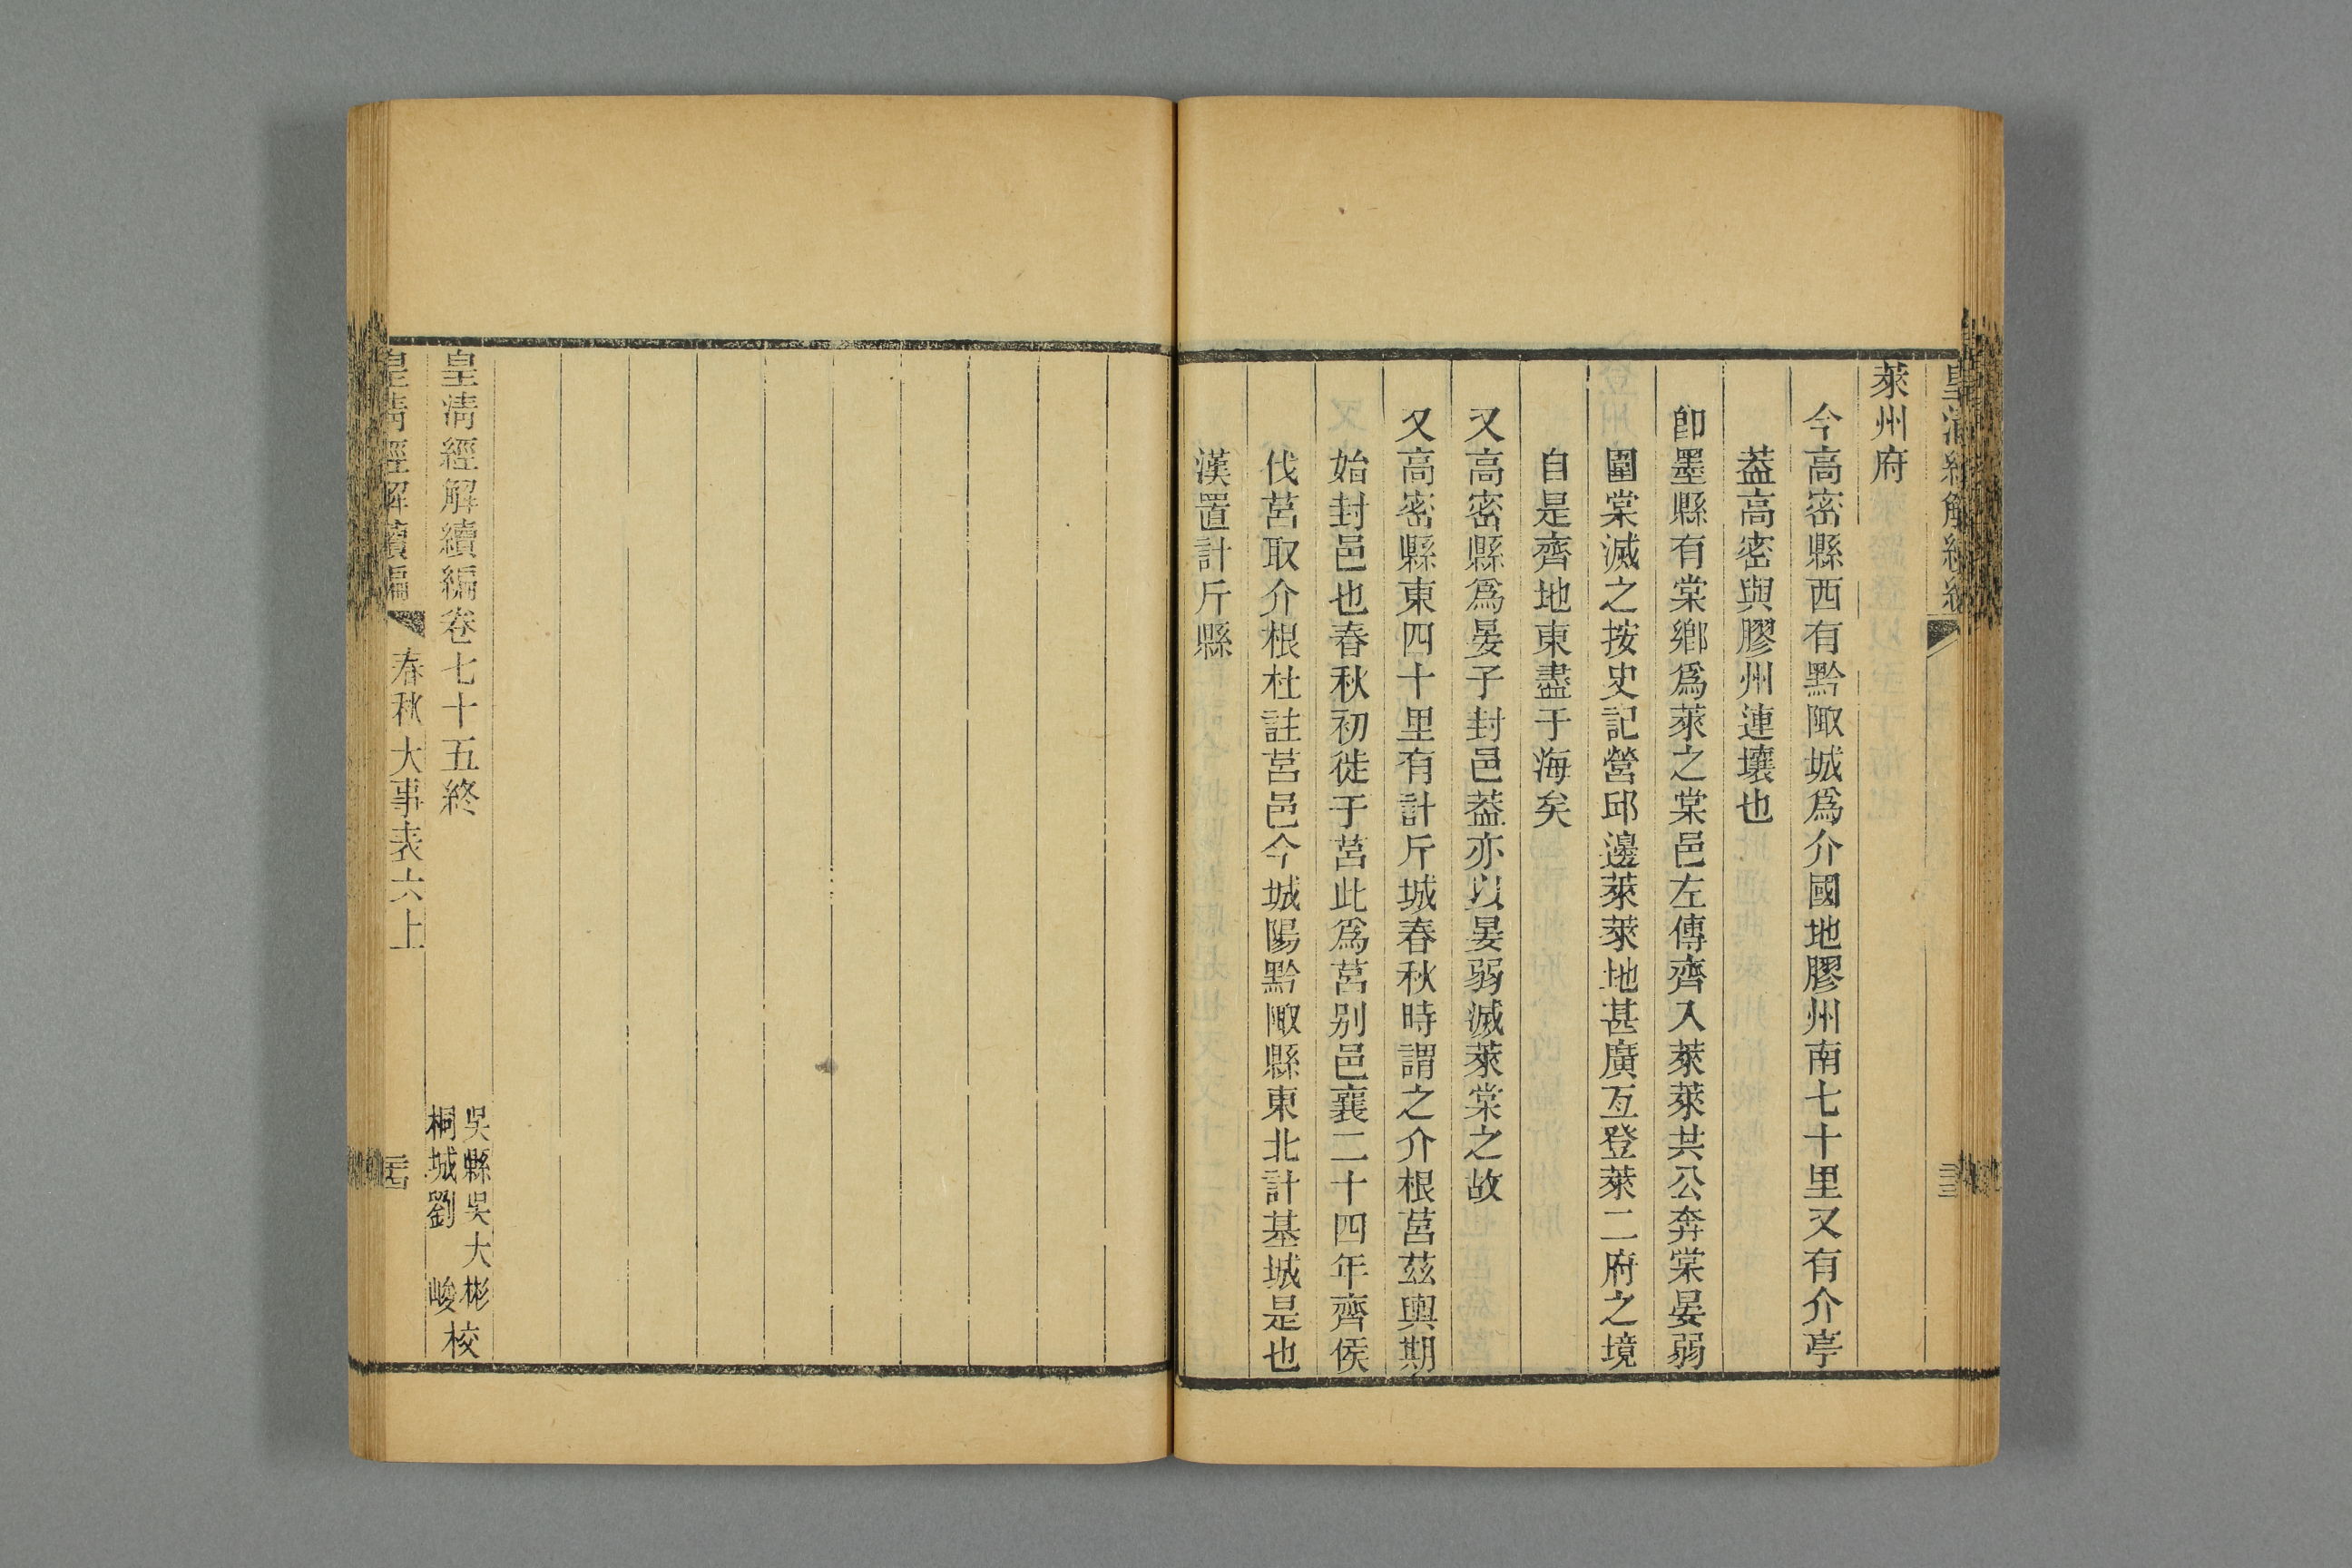 萊州府
今高密縣西有黔陬城爲介國地膠州南七十里又有介亭
葢高密與膠州連壤也
卽墨縣有棠鄉爲萊之棠邑左傳齊入萊萊共公奔棠晏弱
圍棠滅之按史記營邱邊萊萊地甚廣亙登萊二府之境
自是齊地東盡于海矣
又高密縣爲晏子封邑葢亦以晏弱滅萊棠之故
又高密縣東四十里有計斤城春秋時謂之介根莒茲輿期
始封邑也春秋初徙于莒此爲莒别邑襄二十四年齊侯
伐莒取介根杜註莒邑今城陽黔陬縣東北計基城是也
漢置計斤縣
皇清經解續編卷七十五終
吳縣吳大彬
桐城劉 峻
校
皇清經解續編
春秋大事表六上